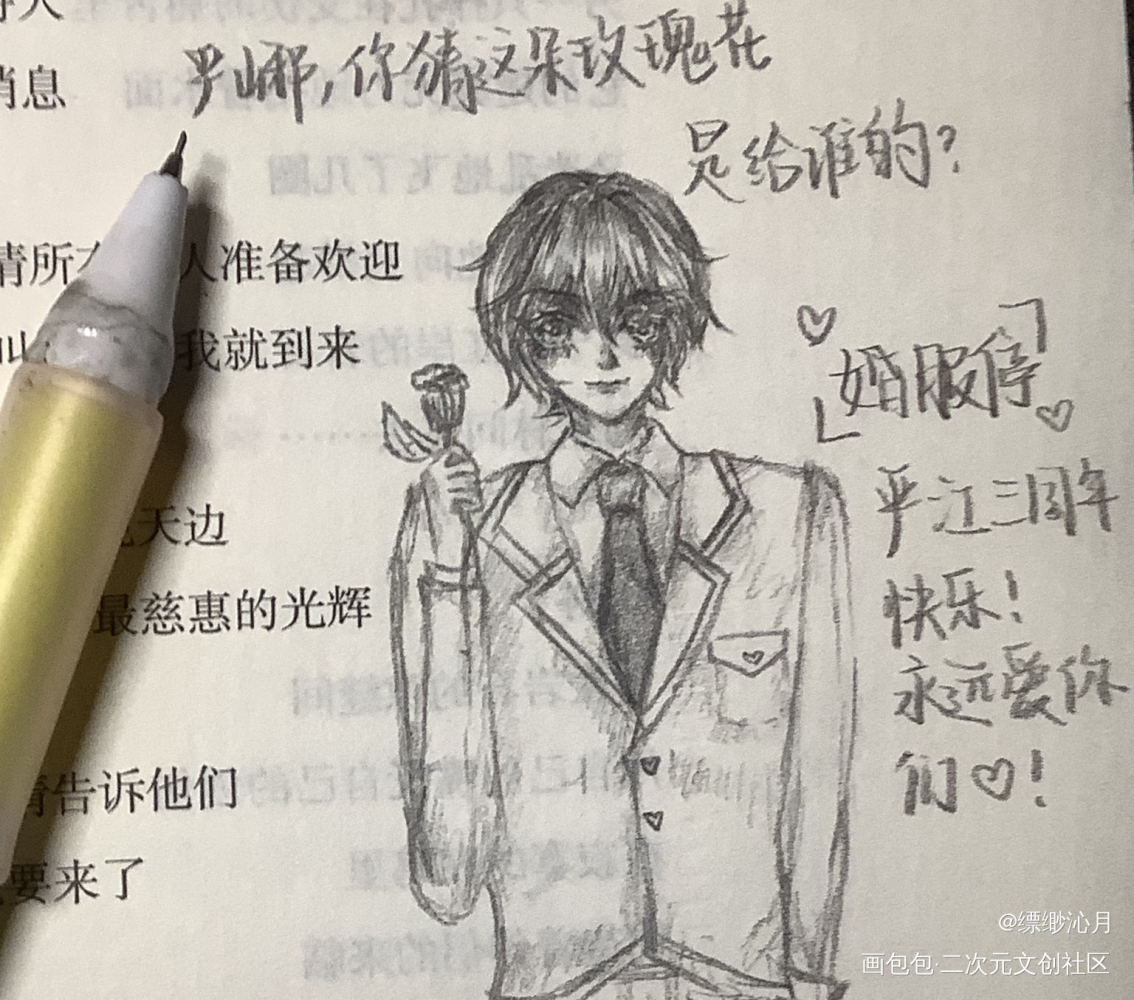 严峫，你猜这朵玫瑰花
是给谁的？
消息
请所 人准备欢迎
我就到来
天边
最慈惠的光辉
请告诉他们
要来了
「婚服停」
严江三周年
快乐！
永远爱你
们♡！
@缥缈沁月
画包包·二次元文创社区